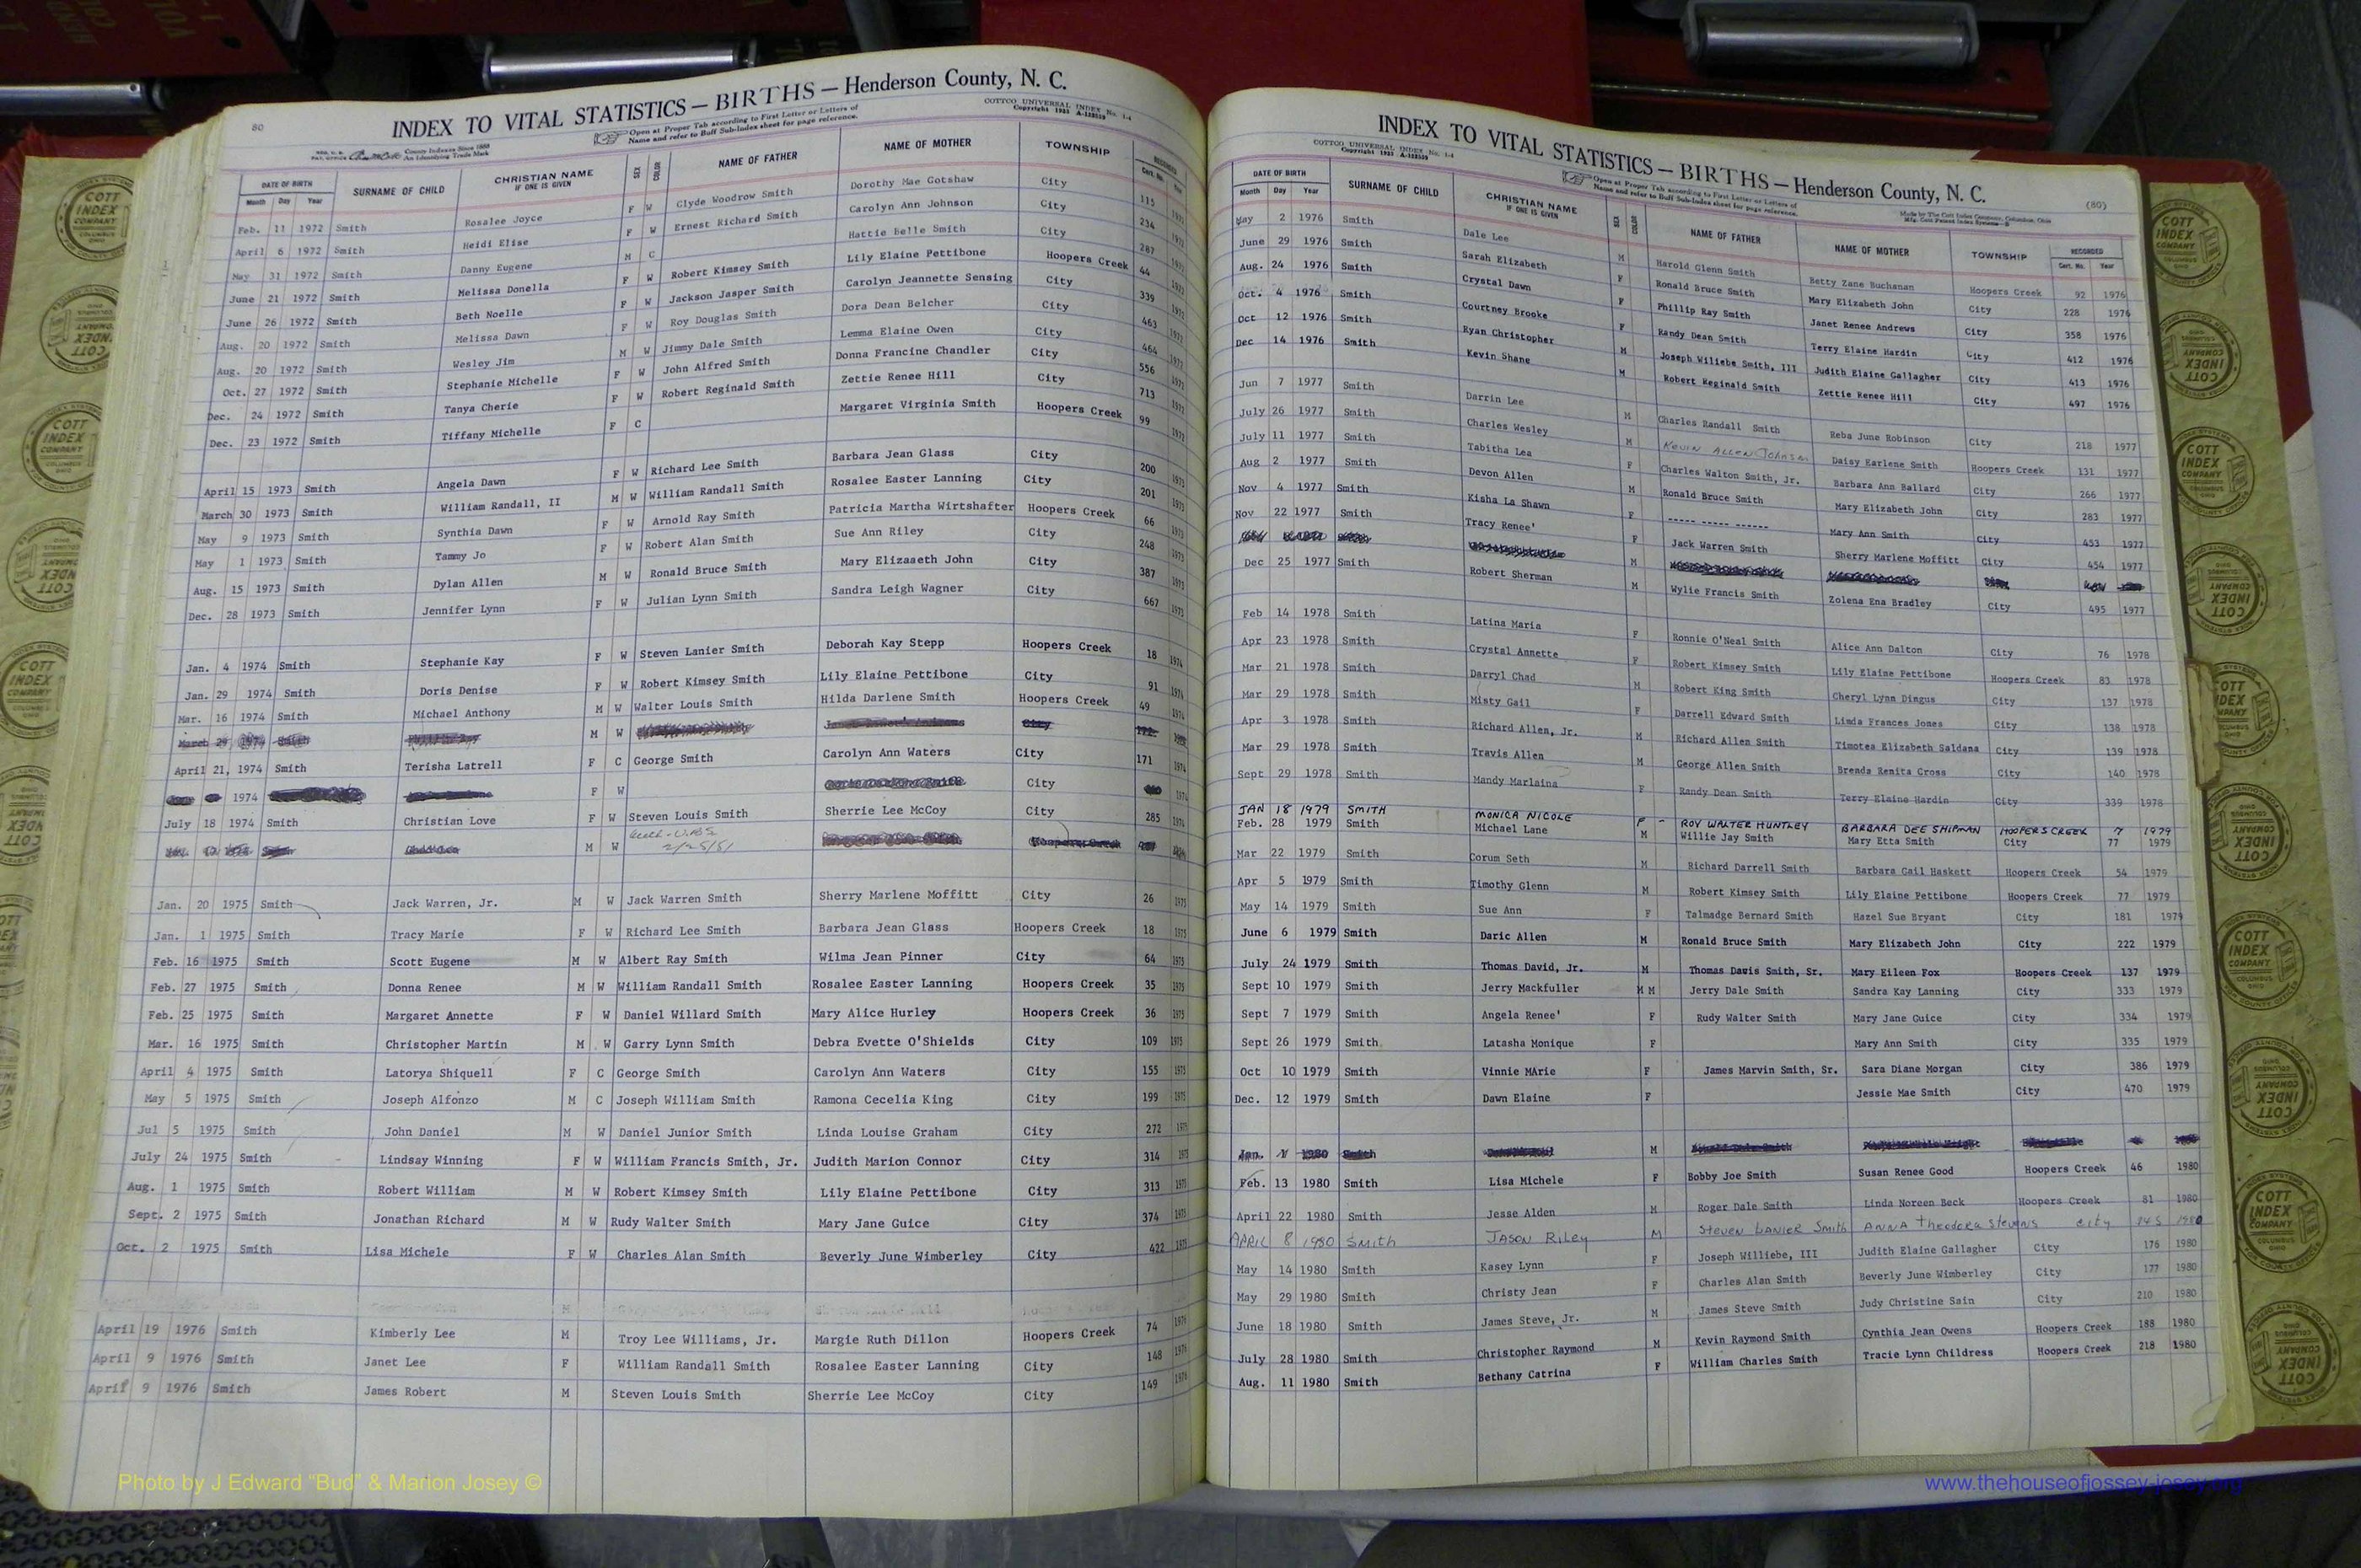 80
INDEX TO VITAL STATISTICS — BIRTHS — Henderson County, N. C.
COTTCO UNIVERSAL INDEX No. 1-4
Copyright 1935 A-128539
Open at Proper Tab according to First Letter or Letters of
Name and refer to Buff Sub-Index sheet for page reference.
County Indexes Since 1888
An Identifying Trade Mark
DATE OF BIRTH SURNAME OF CHILD CHRISTIAN NAME IF ONE IS GIVEN SEX COLOR NAME OF FATHER NAME OF MOTHER TOWNSHIP RECORDED
Month Day Year Cert. No. Year
Feb. 11 1972 Smith Rosalee Joyce F W Clyde Woodrow Smith Dorothy Mae Gotshaw City 115
April 6 1972 Smith Heidi Elise F W Ernest Richard Smith Carolyn Ann Johnson City 234
May 31 1972 Smith Danny Eugene M C Hattie Belle Smith City 287
June 21 1972 Smith Melissa Donella F W Robert Kimsey Smith Lily Elaine Pettibone Hoopers Creek 44
June 26 1972 Smith Beth Noelle F W Jackson Jasper Smith Carolyn Jeannette Sensing City 339
Aug. 20 1972 Smith Melissa Dawn F W Roy Douglas Smith Dora Dean Belcher City 463
Aug. 20 1972 Smith Wesley Jim M W Jimmy Dale Smith Lemma Elaine Owen City 464
Oct. 27 1972 Smith Stephanie Michelle F W John Alfred Smith Donna Francine Chandler City 556
Dec. 24 1972 Smith Tanya Cherie F W Robert Reginald Smith Zettie Renee Hill City 713
Dec. 23 1972 Smith Tiffany Michelle F C Margaret Virginia Smith Hoopers Creek 99
April 15 1973 Smith Angela Dawn F W Richard Lee Smith Barbara Jean Glass City 200
March 30 1973 Smith William Randall, II M W William Randall Smith Rosalee Easter Lanning City 201
May 9 1973 Smith Synthia Dawn F W Arnold Ray Smith Patricia Martha Wirtshafter Hoopers Creek 66
May 1 1973 Smith Tammy Jo F W Robert Alan Smith Sue Ann Riley City 248
Aug. 15 1973 Smith Dylan Allen M W Ronald Bruce Smith Mary Elizaaeth John City 387
Dec. 28 1973 Smith Jennifer Lynn F W Julian Lynn Smith Sandra Leigh Wagner City 667
Jan. 4 1974 Smith Stephanie Kay F W Steven Lanier Smith Deborah Kay Stepp Hoopers Creek 18 1974
Jan. 29 1974 Smith Doris Denise F W Robert Kimsey Smith Lily Elaine Pettibone City 91 1974
Mar. 16 1974 Smith Michael Anthony M W Walter Louis Smith Hilda Darlene Smith Hoopers Creek 49 1974
March 29 1974 Smith M W City
April 21, 1974 Smith Terisha Latrell F C George Smith Carolyn Ann Waters City 171 1974
1974 F W City 1974
July 18 1974 Smith Christian Love F W Steven Louis Smith Sherrie Lee McCoy City 285 1974
M W Hoopers Creek
Jan. 20 1975 Smith Jack Warren, Jr. M W Jack Warren Smith Sherry Marlene Moffitt City 26 1975
Jan. 1 1975 Smith Tracy Marie F W Richard Lee Smith Barbara Jean Glass Hoopers Creek 18 1975
Feb. 16 1975 Smith Scott Eugene M W Albert Ray Smith Wilma Jean Pinner City 64 1975
Feb. 27 1975 Smith Donna Renee M W William Randall Smith Rosalee Easter Lanning Hoopers Creek 35 1975
Feb. 25 1975 Smith Margaret Annette F W Daniel Willard Smith Mary Alice Hurley Hoopers Creek 36 1975
Mar. 16 1975 Smith Christopher Martin M W Garry Lynn Smith Debra Evette O'Shields City 109 1975
April 4 1975 Smith Latorya Shiquell F C George Smith Carolyn Ann Waters City 155 1975
May 5 1975 Smith Joseph Alfonzo M C Joseph William Smith Ramona Cecelia King City 199 1975
Jul 5 1975 Smith John Daniel M W Daniel Junior Smith Linda Louise Graham City 272 1975
July 24 1975 Smith Lindsay Winning F W William Francis Smith, Jr. Judith Marion Connor City 314 1975
Aug. 1 1975 Smith Robert William M W Robert Kimsey Smith Lily Elaine Pettibone City 313 1975
Sept. 2 1975 Smith Jonathan Richard M W Rudy Walter Smith Mary Jane Guice City 374 1975
Oct. 2 1975 Smith Lisa Michele F W Charles Alan Smith Beverly June Wimberley City 422 1975
April 19 1976 Smith Kimberly Lee M Troy Lee Williams, Jr. Margie Ruth Dillon Hoopers Creek 74 1976
April 9 1976 Smith Janet Lee F William Randall Smith Rosalee Easter Lanning City 148 1976
April 9 1976 Smith James Robert M Steven Louis Smith Sherrie Lee McCoy City 149 1976
INDEX TO VITAL STATISTICS — BIRTHS — Henderson County, N. C.
(80)
COTTCO UNIVERSAL INDEX No. 1-4
Copyright 1935 A-128539
Open at Proper Tab according to First Letter or Letters of
Name and refer to Buff Sub-Index sheet for page reference.
Made by The Cott Index Company, Columbus, Ohio
DATE OF BIRTH SURNAME OF CHILD CHRISTIAN NAME IF ONE IS GIVEN SEX COLOR NAME OF FATHER NAME OF MOTHER TOWNSHIP RECORDED
Month Day Year Cert. No. Year
May 2 1976 Smith Dale Lee M Harold Glenn Smith Betty Zane Buchanan Hoopers Creek 92 1976
June 29 1976 Smith Sarah Elizabeth F Ronald Bruce Smith Mary Elizabeth John City 228 1976
Aug. 24 1976 Smith Crystal Dawn F Phillip Ray Smith Janet Renee Andrews City 358 1976
Oct. 4 1976 Smith Courtney Brooke F Randy Dean Smith Terry Elaine Hardin City 412 1976
Oct 12 1976 Smith Ryan Christopher M Joseph Wiliebe Smith, III Judith Elaine Gallagher City 413 1976
Dec 14 1976 Smith Kevin Shane M Robert Reginald Smith Zettie Renee Hill City 497 1976
Jun 7 1977 Smith Darrin Lee M Charles Randall Smith Reba June Robinson City 218 1977
July 26 1977 Smith Charles Wesley M Kevin Allen Johnson Daisy Earlene Smith Hoopers Creek 131 1977
July 11 1977 Smith Tabitha Lea F Charles Walton Smith, Jr. Barbara Ann Ballard City 266 1977
Aug 2 1977 Smith Devon Allen M Ronald Bruce Smith Mary Elizabeth John City 283 1977
Nov 4 1977 Smith Kisha La Shawn F ----- ----- ------ Mary Ann Smith City 453 1977
Nov 22 1977 Smith Tracy Renee' F Jack Warren Smith Sherry Marlene Moffitt City 454 1977
Dec 25 1977 Smith Robert Sherman M Wylie Francis Smith Zolena Ena Bradley City 495 1977
Feb 14 1978 Smith Latina Maria F Ronnie O'Neal Smith Alice Ann Dalton City 76 1978
Apr 23 1978 Smith Crystal Annette F Robert Kimsey Smith Lily Elaine Pettibone Hoopers Creek 83 1978
Mar 21 1978 Smith Darryl Chad M Robert King Smith Cheryl Lynn Dingus City 137 1978
Mar 29 1978 Smith Misty Gail F Darrell Edward Smith Linda Frances Jones City 138 1978
Apr 3 1978 Smith Richard Allen, Jr. M Richard Allen Smith Timotea Elizabeth Saldana City 139 1978
Mar 29 1978 Smith Travis Allen M George Allen Smith Brenda Renita Cross City 140 1978
Sept 29 1978 Smith Mandy Marlaina F Randy Dean Smith Terry Elaine Hardin City 339 1978
JAN 18 1979 SMITH MONICA NICOLE F - ROY WALTER HUNTLEY BARBARA DEE SHIPMAN HOOPERS CREEK 7 1979
Feb. 28 1979 Smith Michael Lane M Willie Jay Smith Mary Etta Smith City 77 1979
Mar 22 1979 Smith Corum Seth M Richard Darrell Smith Barbara Gail Haskett Hoopers Creek 54 1979
Apr 5 1979 Smith Timothy Glenn M Robert Kimsey Smith Lily Elaine Pettibone Hoopers Creek 77 1979
May 14 1979 Smith Sue Ann F Talmadge Bernard Smith Hazel Sue Bryant City 181 1979
June 6 1979 Smith Daric Allen M Ronald Bruce Smith Mary Elizabeth John City 222 1979
July 24 1979 Smith Thomas David, Jr. M Thomas Davis Smith, Sr. Mary Eileen Fox Hoopers Creek 137 1979
Sept 10 1979 Smith Jerry Mackfuller M M Jerry Dale Smith Sandra Kay Lanning City 333 1979
Sept 7 1979 Smith Angela Renee' F Rudy Walter Smith Mary Jane Guice City 334 1979
Sept 26 1979 Smith Latasha Monique F Mary Ann Smith City 335 1979
Oct 10 1979 Smith Vinnie MArie F James Marvin Smith, Sr. Sara Diane Morgan City 386 1979
Dec. 12 1979 Smith Dawn Elaine F Jessie Mae Smith City 470 1979
Jan. 1980 Smith M
Feb. 13 1980 Smith Lisa Michele F Bobby Joe Smith Susan Renee Good Hoopers Creek 46 1980
April 22 1980 Smith Jesse Alden M Roger Dale Smith Linda Noreen Beck Hoopers Creek 81 1980
APRIL 8 1980 Smith JASON Riley M Steven Lanier Smith ANNA Theodora Stevens City 1980
May 14 1980 Smith Kasey Lynn F Joseph Williebe, III Judith Elaine Gallagher City 176 1980
May 29 1980 Smith Christy Jean F Charles Alan Smith Beverly June Wimberley City 177 1980
June 18 1980 Smith James Steve, Jr. M James Steve Smith Judy Christine Sain City 210 1980
July 28 1980 Smith Christopher Raymond M Kevin Raymond Smith Cynthia Jean Owens Hoopers Creek 188 1980
Aug. 11 1980 Smith Bethany Catrina F William Charles Smith Tracie Lynn Childress Hoopers Creek 218 1980
COTT INDEX COMPANY COLUMBUS OHIO
Photo by J Edward “Bud” & Marion Josey ©
www.thehouseofjossey-josey.org